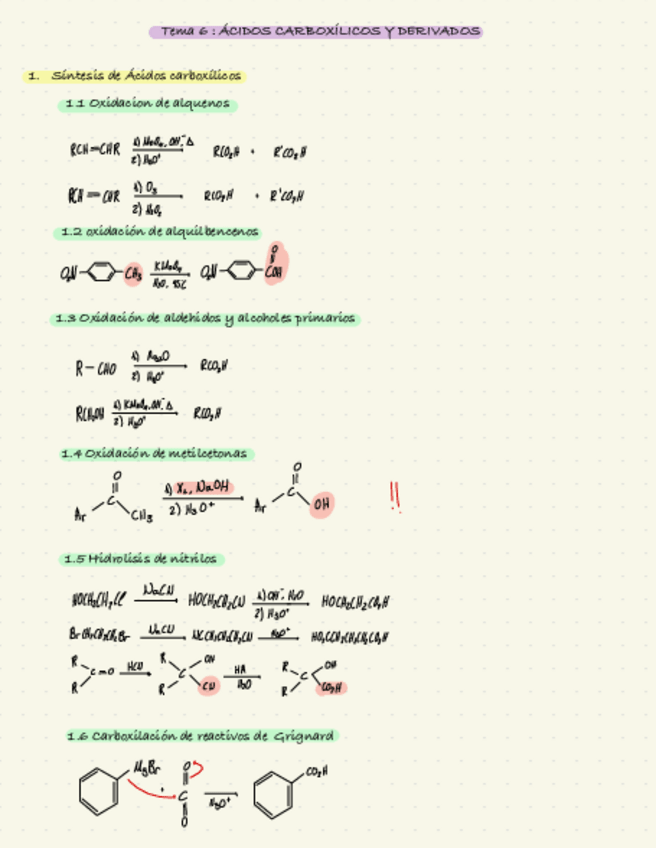 Tema 6 : ÁCIDOS CARBOXÍLICOS Y DERIVADOS
1. Síntesis de Ácidos carboxílicos
1.1 Oxidacion de alquenos
RCH=CHR 1) MnO₄, OH⁻, Δ 2) H₃O⁺ RCO₂H + R'CO₂H
RCH=CHR 1) O₃ 2) H₂O₂ RCO₂H + R'CO₂H
1.2 oxidación de alquilbencenos
O₂N CH₃ KMnO₄ H₂O, 95ºC O₂N O COH
1.3 Oxidación de aldehidos y alcoholes primarios
R-CHO 1) Ag₂O 2) H₃O⁺ RCO₂H
RCH₂OH 1) KMnO₄, OH⁻, Δ 2) H₃O⁺ RCO₂H
1.4 Oxidación de metilcetonas
O C Ar CH₃ 1) X₂, NaOH 2) H₃O⁺ O C Ar OH !!
1.5 Hidrolisis de nitrilos
HOCH₂CH₂Cl NaCN HOCH₂CH₂CN 1) OH⁻, H₂O 2) H₃O⁺ HOCH₂CH₂CO₂H
BrCH₂CH₂CH₂Br NaCN NCCH₂CH₂CH₂CN H₃O⁺ HO₂CCH₂CH₂CH₂CO₂H
R R C=O HCN R R C OH CN HA H₂O R R C OH CO₂H
1.6 Carboxilación de reactivos de Grignard
MgBr + O C O H₃O⁺ CO₂H